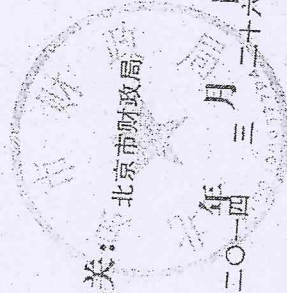 关：
北京市财政局
二〇一四年三月二十六